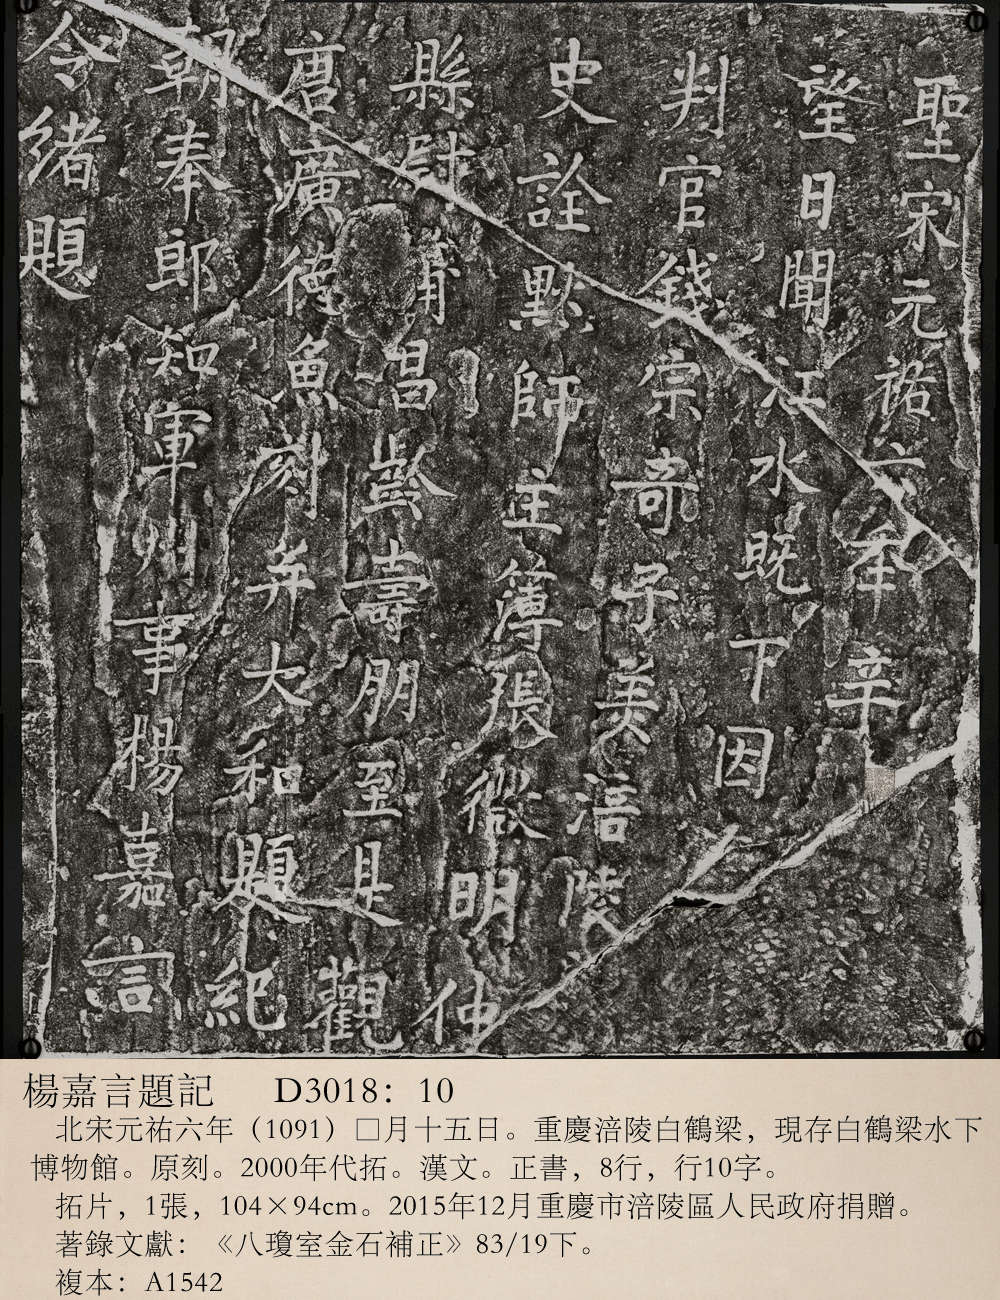 聖宋元祐六年辛
望日聞江水既下因
判官錢宗奇子美涪陵
史詮默師主簿張微明仲
縣尉蒲昌齡壽朋至是觀
唐廣德魚刻并大和題紀
朝奉郎知軍州事楊嘉言
令緒題
楊嘉言題記 D3018：10
北宋元祐六年（1091）□月十五日。重慶涪陵白鶴梁，現存白鶴梁水下
博物館。原刻。2000年代拓。漢文。正書，8行，行10字。
拓片，1張，104×94cm。2015年12月重慶市涪陵區人民政府捐贈。
著錄文獻：《八瓊室金石補正》83/19下。
複本：A1542